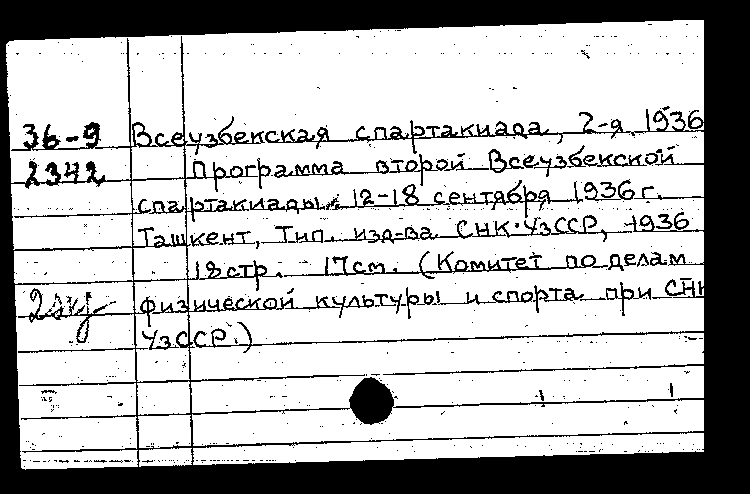 36-9 Всеузбекская спартакиада, 2-я. 1936
2342 Программа второй Всеузбекской
спартакиады. 12-18 сентября 1936 г.
Ташкент, Тип. изд-ва СНК УзССР, 1936
18 стр. 17 см. (Комитет по делам
физической культуры и спорта при СНК
УзССР.)